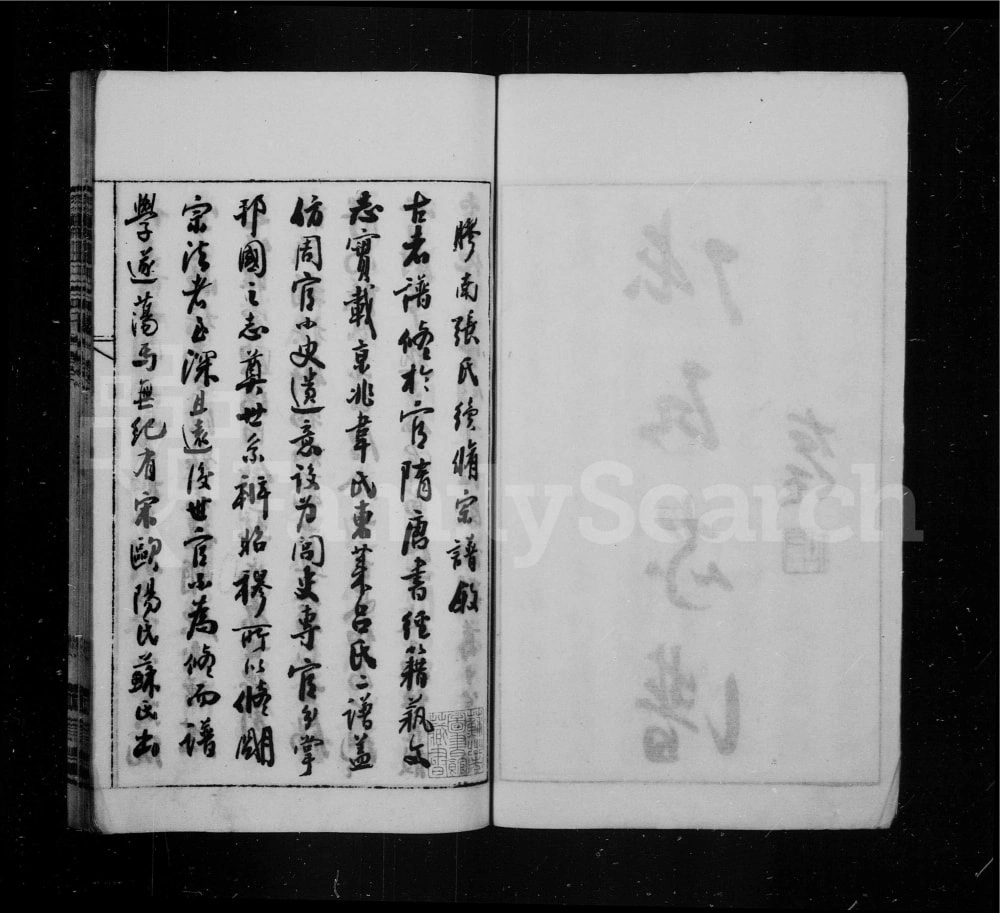 膠南張氏續脩宗譜敘
古者譜修於官隋唐書經籍藝文
志實載京兆韋氏東萊呂氏二譜蓋
仿周官小史遺意設為閭史專官分掌
邦國之志奠世系辨昭穆所以修明
宗法者至深且遠後世官不為修而譜
學遂蕩焉無紀有宋歐陽氏蘇氏出
FamilySearch